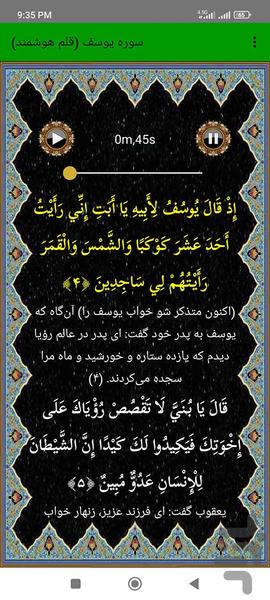 9:35 PM
4.5G
65
سوره یوسف (قلم هوشمند)
0m,45s
إِذْ قَالَ يُوسُفُ لِأَبِيهِ يَا أَبَتِ إِنِّي رَأَيْتُ
أَحَدَ عَشَرَ كَوْكَبًا وَالشَّمْسَ وَالْقَمَرَ
رَأَيْتُهُمْ لِي سَاجِدِينَ ﴿۴﴾
(اکنون متذکر شو خواب یوسف را) آن‌گاه که
یوسف به پدر خود گفت: ای پدر در عالم رؤیا
دیدم که یازده ستاره و خورشید و ماه مرا
سجده می‌کردند. (۴)
قَالَ يَا بُنَيَّ لَا تَقْصُصْ رُؤْيَاكَ عَلَى
إِخْوَتِكَ فَيَكِيدُوا لَكَ كَيْدًا إِنَّ الشَّيْطَانَ
لِلْإِنْسَانِ عَدُوٌّ مُبِينٌ ﴿۵﴾
یعقوب گفت: ای فرزند عزیز، زنهار خواب